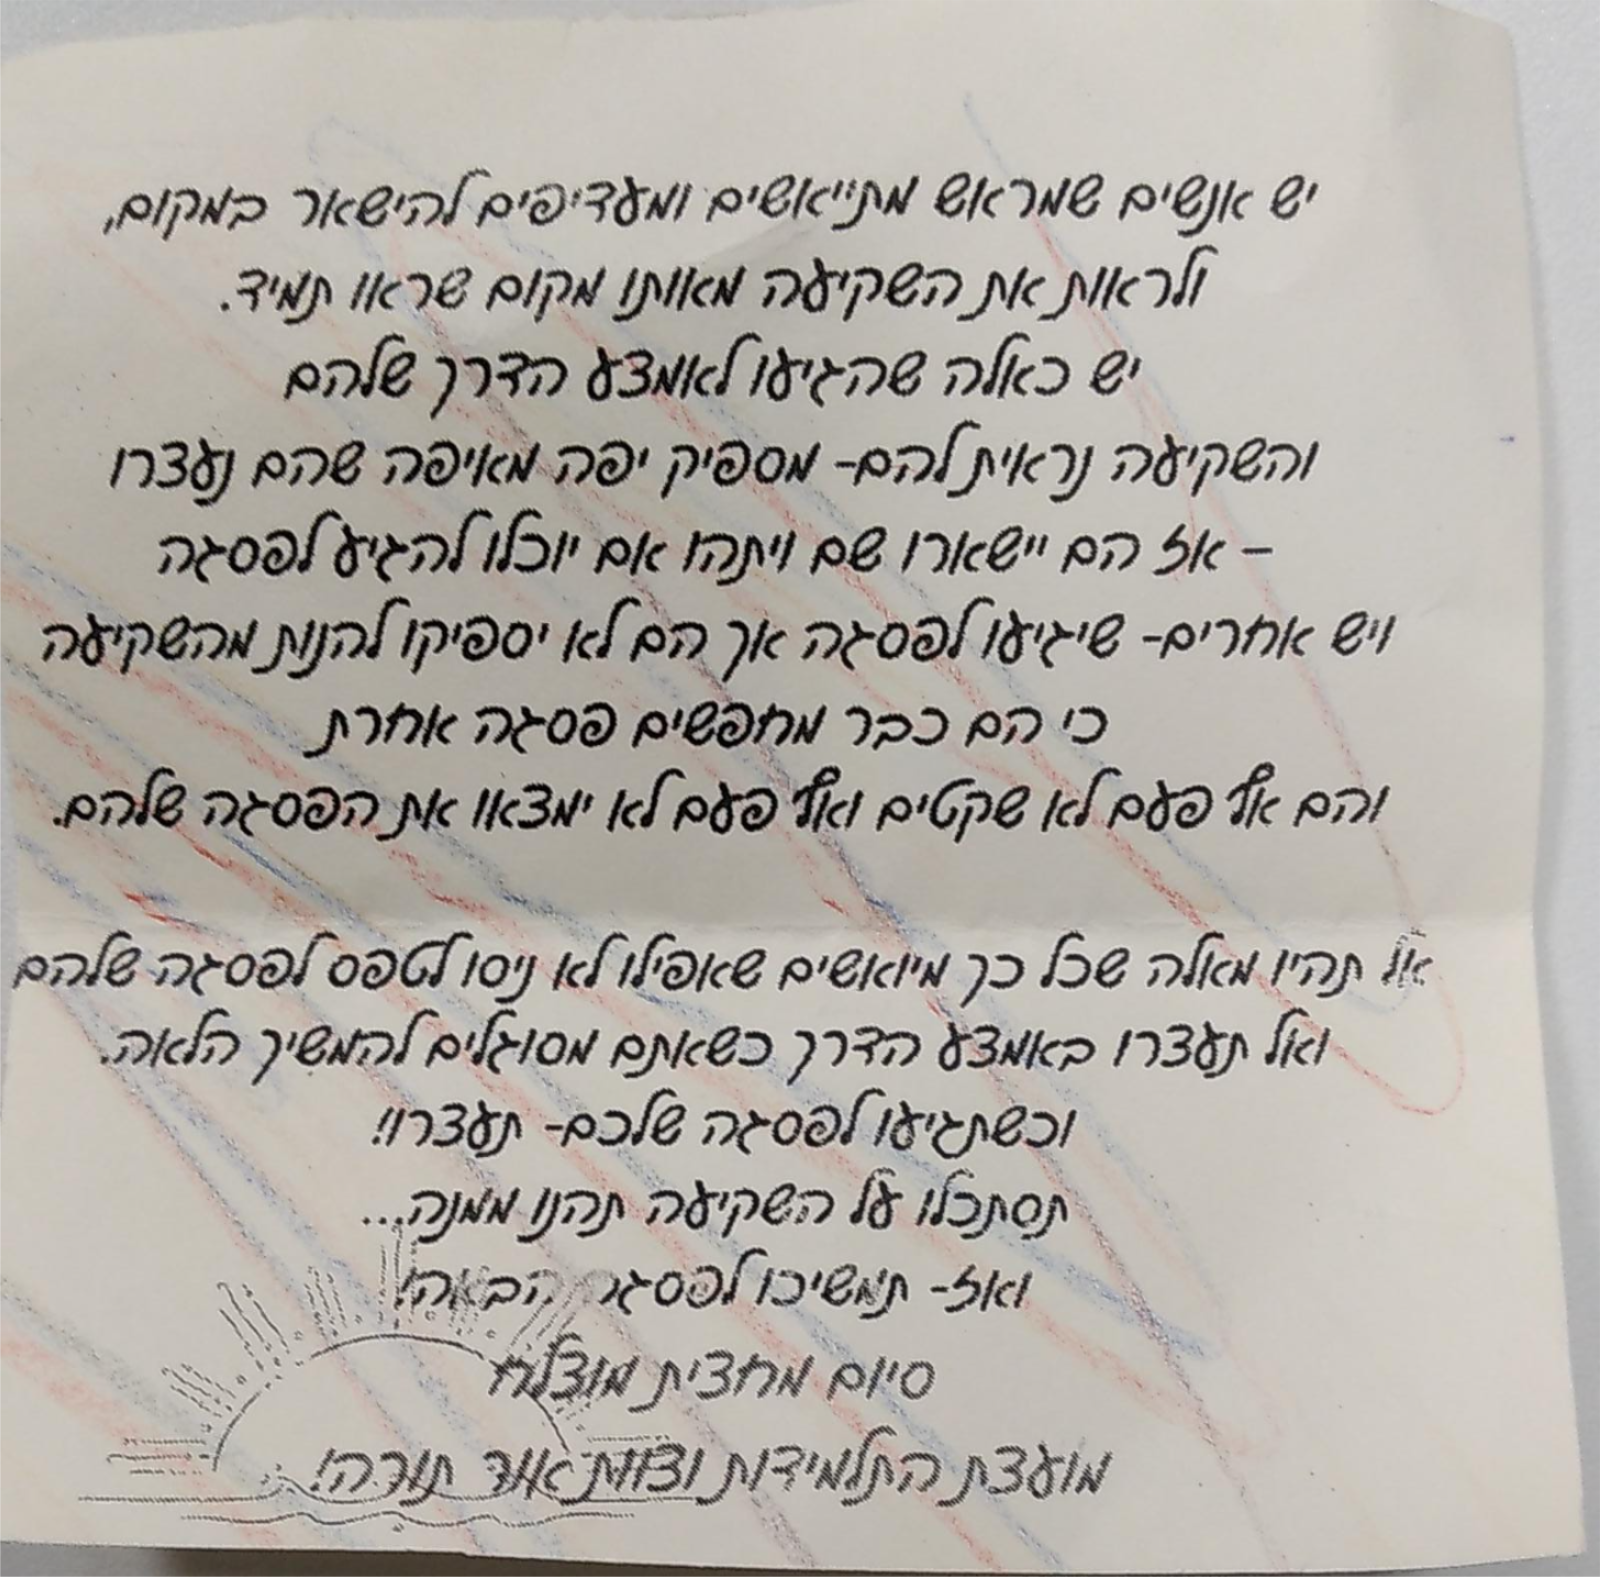 יש אנשים שמראש מתייאשים ומעדיפים להישאר במקום,
ולראות את השקיעה מאותו מקום שראו תמיד.
יש כאלה שהגיעו לאמצע הדרך שלהם
והשקיעה נראית להם- מספיק יפה מאיפה שהם נעצרו
– אז הם יישארו שם ויתהו אם יוכלו להגיע לפסגה
ויש אחרים- שיגיעו לפסגה אך הם לא יספיקו להנות מהשקיעה
כי הם כבר מחפשים פסגה אחרת
והם אף פעם לא שקטים ואף פעם לא ימצאו את הפסגה שלהם.
אל תהיו מאלה שכל כך מיואשים שאפילו לא ניסו לטפס לפסגה שלהם
ואל תעצרו באמצע הדרך כשאתם מסוגלים להמשיך הלאה.
וכשתגיעו לפסגה שלכם- תעצרו!
תסתכלו על השקיעה תהנו ממנה...
ואז- תמשיכו לפסגה הבאה!
סיום מחצית מוצלח
מועצת התלמידות וצוות אור תורה!